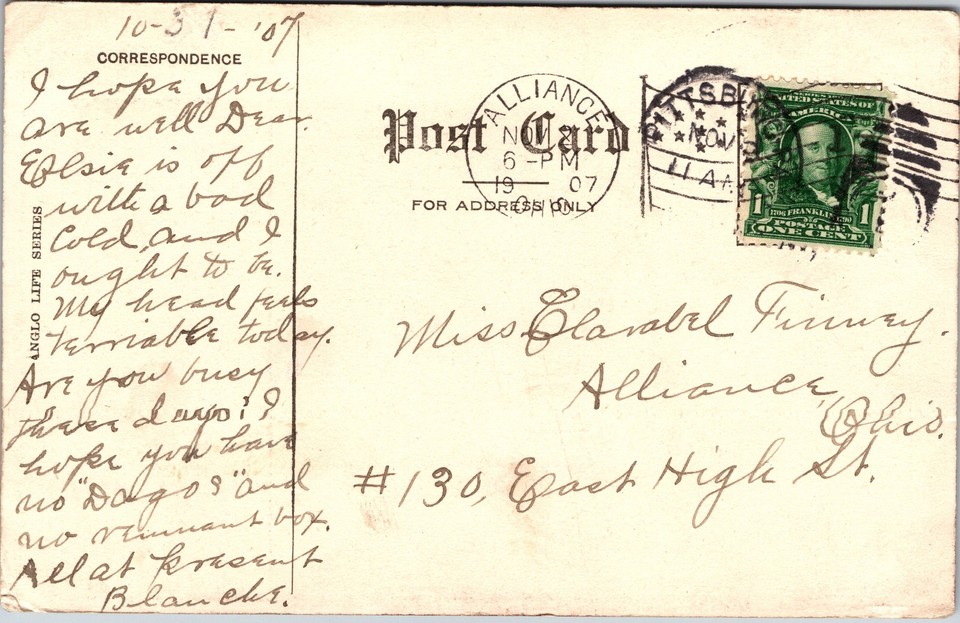 10-31-'07
CORRESPONDENCE
I hope you
are well Dear.
Elsie is off
with a bad
Cold and I
ought to be.
My head feels
terriable today.
Are you busy
these days? I
hope you have
no "Dagos" and
no remnant box.
All at present
Blanche.
ANGLO LIFE SERIES
Post Card
FOR ADDRESS ONLY
ALLIANCE
NOV 2
6 - PM
19 07
OHIO
PITTSBURG
NOV
11 AM
UNITED STATES OF
AMERICA
1 1
1706 FRANKLIN 1790
POSTAGE
ONE CENT
Miss Clarabel Finney.
Alliance,
Ohio.
#130, East High St.